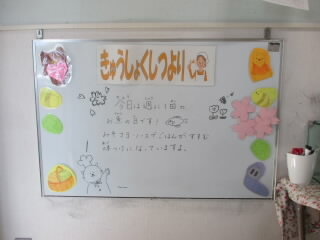 きゅうしょくしつより
今日は週に1回の
お魚の日です！
みそマヨソースでごはんがすすむ
味つけになっていますよ。